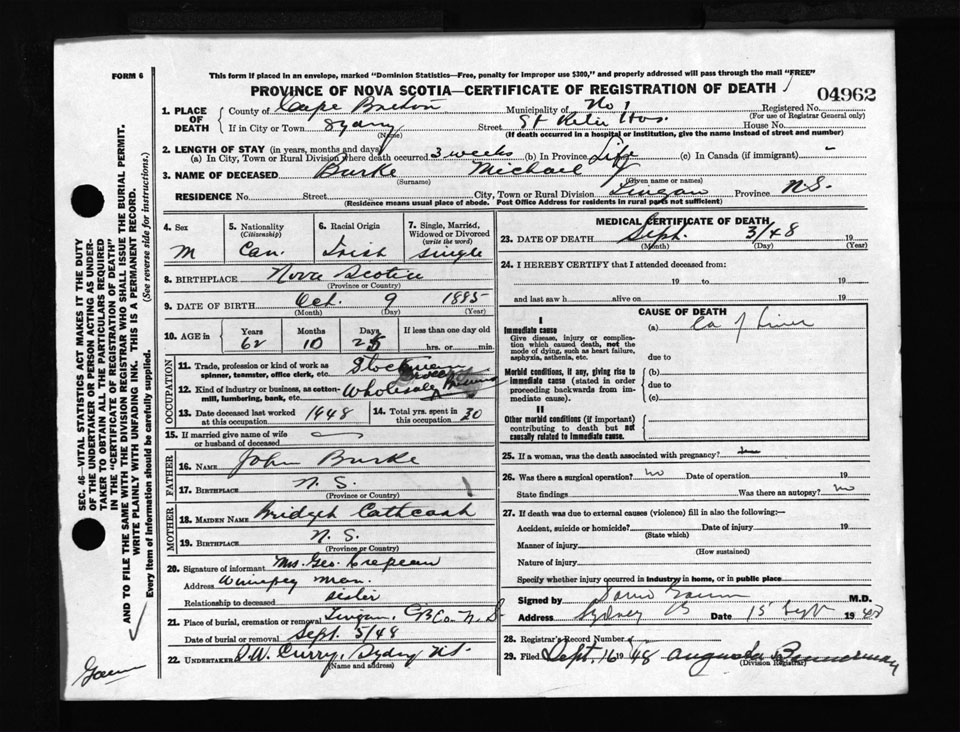 FORM 6
This form if placed in an envelope, marked "Dominion Statistics—Free, penalty for improper use $300," and properly addressed will pass through the mail "FREE"
PROVINCE OF NOVA SCOTIA—CERTIFICATE OF REGISTRATION OF DEATH
04962
1. PLACE OF DEATH
County of Cape Breton Municipality of No 1 Registered No.
(For use of Registrar General only)
If in City or Town Sydney Street St Rita Hos. House No.
(Name) (If death occurred in a hospital or institution, give the name instead of street and number)
2. LENGTH OF STAY (in years, months and days)
(a) In City, Town or Rural Division where death occurred 3 weeks (b) In Province Life (c) In Canada (if immigrant) -
3. NAME OF DECEASED Burke Michael
(Surname) (Given name or names)
RESIDENCE No. Street City, Town or Rural Division Lingan Province N.S.
(Residence means usual place of abode. Post Office Address for residents in rural parts not sufficient)
4. Sex M
5. Nationality (Citizenship) Can.
6. Racial Origin Irish
7. Single, Married, Widowed or Divorced (write the word) Single
8. BIRTHPLACE Nova Scotia
(Province or Country)
9. DATE OF BIRTH Oct. 9 1885
(Month) (Day) (Year)
10. AGE in Years Months Days If less than one day old
62 10 25 hrs. or min.
OCCUPATION
11. Trade, profession or kind of work as spinner, teamster, office clerk, etc.
12. Kind of industry or business, as cotton-mill, lumbering, bank, etc. Wholesale
13. Date deceased last worked at this occupation 1948
14. Total yrs. spent in this occupation 30
15. If married give name of wife or husband of deceased
FATHER
16. NAME John Burke
17. BIRTHPLACE N. S.
(Province or Country)
MOTHER
18. MAIDEN NAME Bridget Cathcart
19. BIRTHPLACE N. S.
(Province or Country)
20. Signature of informant Mrs. Geo. Crepeau
Address Winnipeg Man.
Relationship to deceased sister
21. Place of burial, cremation or removal Lingan, CB Co. N.S
Date of burial or removal Sept. 5/48
22. UNDERTAKER D.W. Curry, Sydney NS.
(Name and address)
MEDICAL CERTIFICATE OF DEATH
23. DATE OF DEATH Sept. 3/48 19
(Month) (Day) (Year)
24. I HEREBY CERTIFY that I attended deceased from:
19 to 19
and last saw h alive on 19
CAUSE OF DEATH
I
Immediate cause (a) Ca of Liver
Give disease, injury or complication which caused death, not the mode of dying, such as heart failure, asphyxia, asthenia, etc.
due to
Morbid conditions, if any, giving rise to immediate cause (stated in order proceeding backwards from immediate cause).
(b)
due to
(c)
II
Other morbid conditions (if important) contributing to death but not causally related to immediate cause.
25. If a woman, was the death associated with pregnancy?
26. Was there a surgical operation? No Date of operation 19
State findings Was there an autopsy? No
27. If death was due to external causes (violence) fill in also the following:—
Accident, suicide or homicide? Date of injury 19
(State which)
Manner of injury
(How sustained)
Nature of injury
Specify whether injury occurred in industry in home, or in public place
Signed by M.D.
Address Sydney NS Date 15 Sept 1948
28. Registrar's Record Number
29. Filed Sept. 16 1948 Augusta Bannerman
(Division Registrar)
SEC. 46—VITAL STATISTICS ACT MAKES IT THE DUTY OF THE UNDERTAKER OR PERSON ACTING AS UNDERTAKER TO OBTAIN ALL THE PARTICULARS REQUIRED IN THE "CERTIFICATE OF REGISTRATION OF DEATH"
AND TO FILE THE SAME WITH THE DIVISION REGISTRAR WHO SHALL ISSUE THE BURIAL PERMIT.
WRITE PLAINLY WITH UNFADING INK. THIS IS A PERMANENT RECORD.
Every item of Information should be carefully supplied. (See reverse side for instructions.)